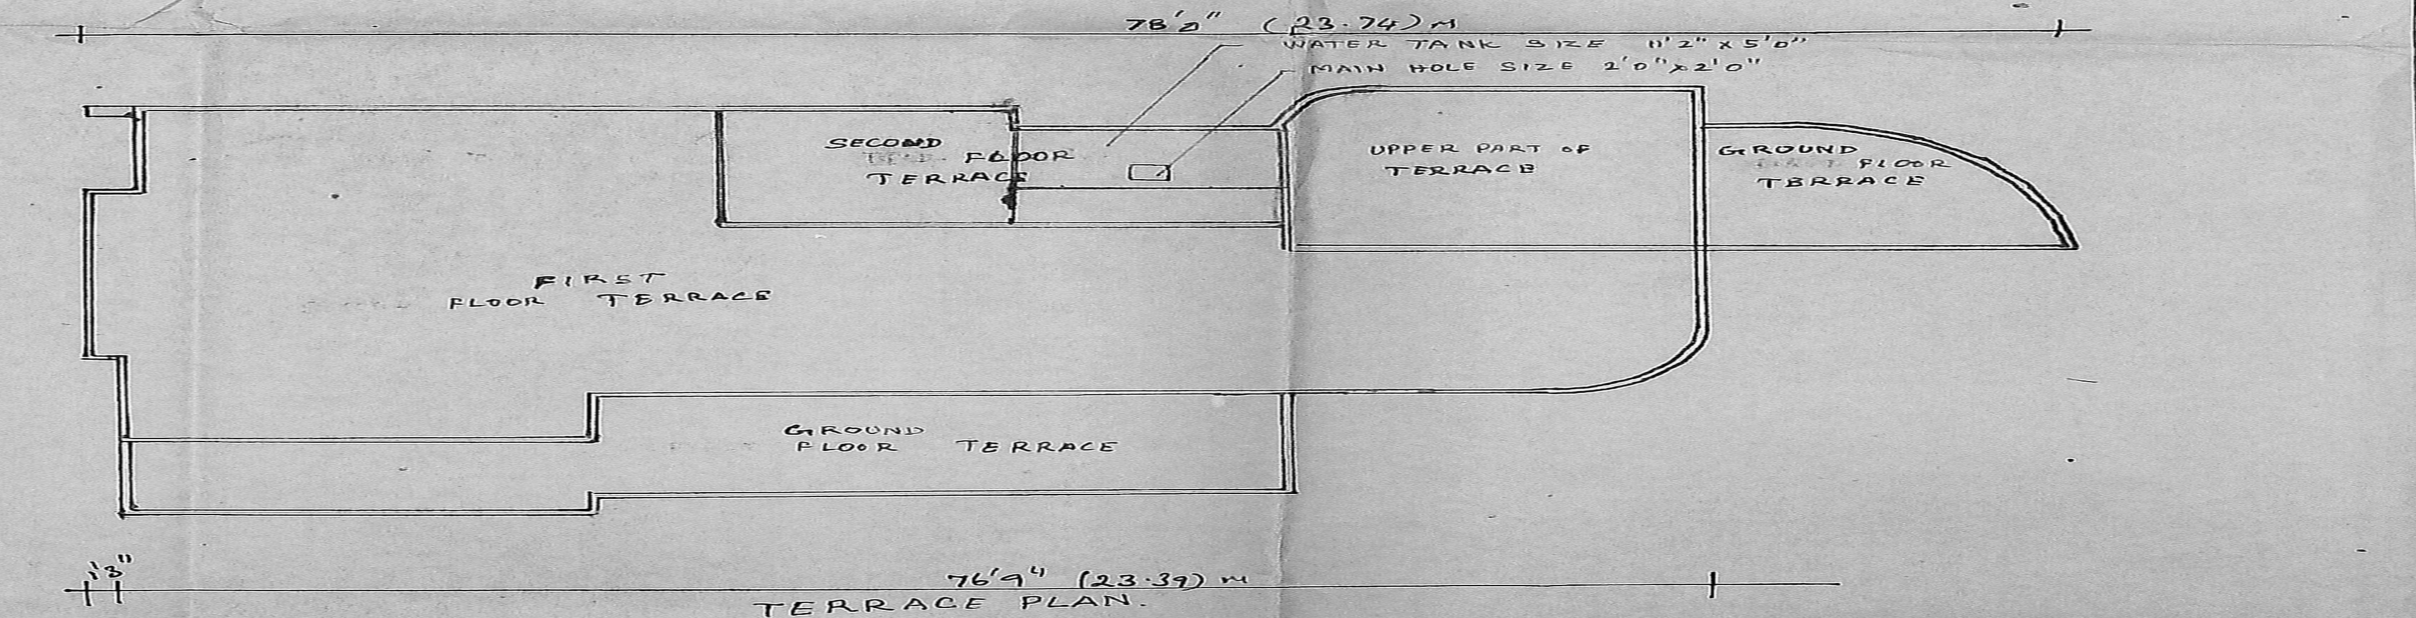 78'0" (23.74) M
WATER TANK SIZE 11'2" x 5'0"
MAIN HOLE SIZE 2'0" x 2'0"
SECOND
FLOOR
TERRACE
UPPER PART OF
TERRACE
GROUND
FLOOR
TERRACE
FIRST
FLOOR TERRACE
GROUND
FLOOR TERRACE
1'3"
76'9" (23.39) M
TERRACE PLAN.